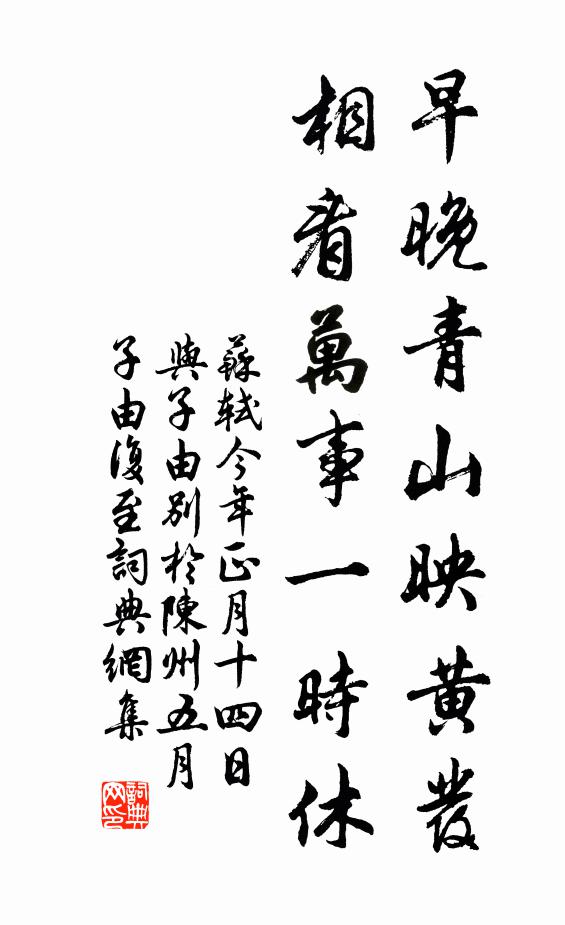 早晚青山映黃發
相看萬事一時休
蘇軾今年正月十四日
與子由別於陳州五月
子由復至詞典網集
詞典
网印